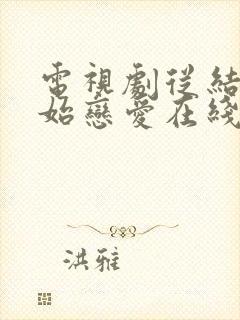 電視劇從結
始戀愛在綫
洪雅